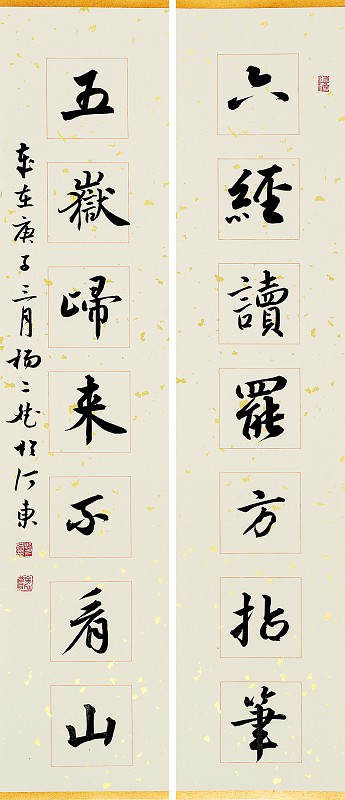 六經讀罷方拈筆
五嶽歸来不看山
歲在庚子三月楊二龙於河東